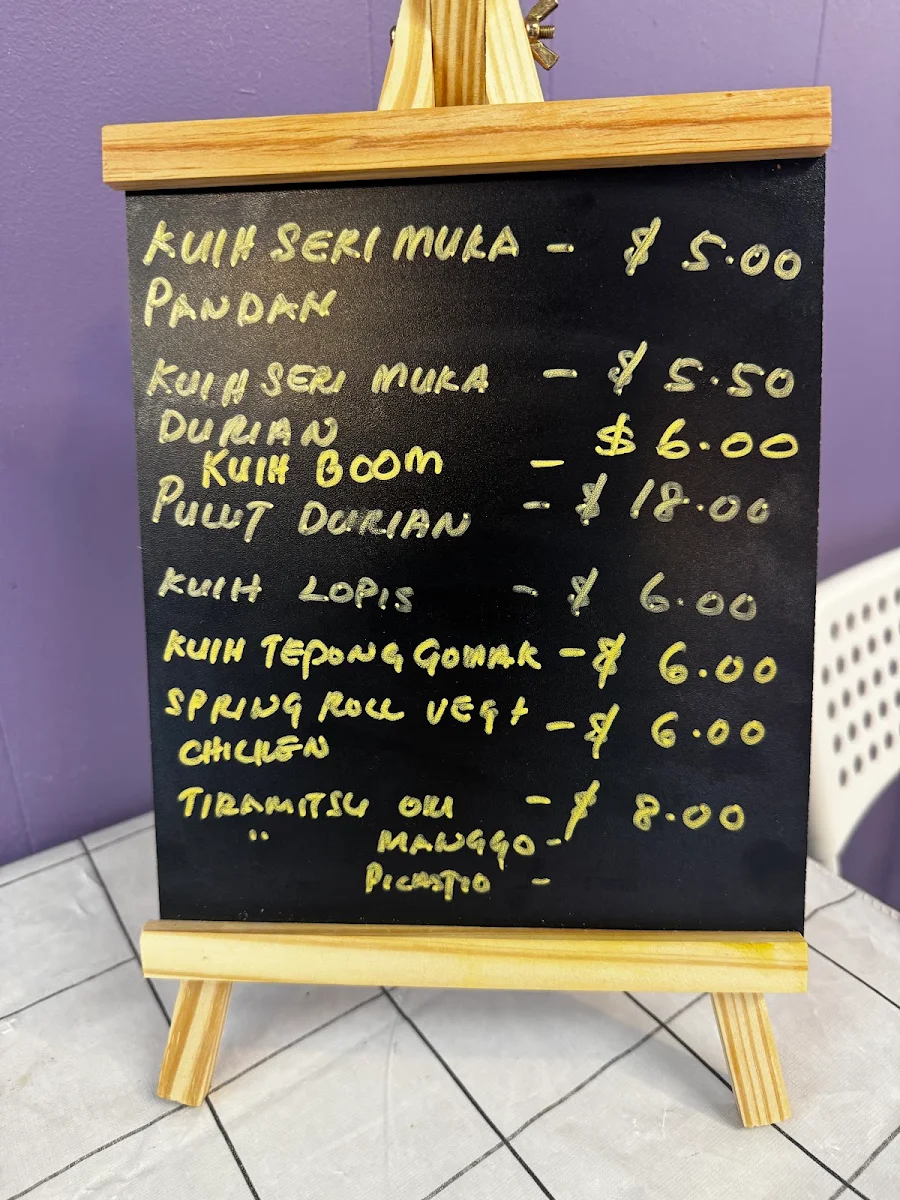 KUIH SERI MUKA - $ 5.00
PANDAN
KUIH SERI MUKA - $ 5.50
DURIAN
KUIH BOOM - $ 6.00
PULUT DURIAN - $ 18.00
KUIH LOPIS - $ 6.00
KUIH TEPONG GOMAK - $ 6.00
SPRING ROLL VEG + - $ 6.00
CHICKEN
TIRAMITSU ORI - $ 8.00
" MANGGO -
PICASTIO -